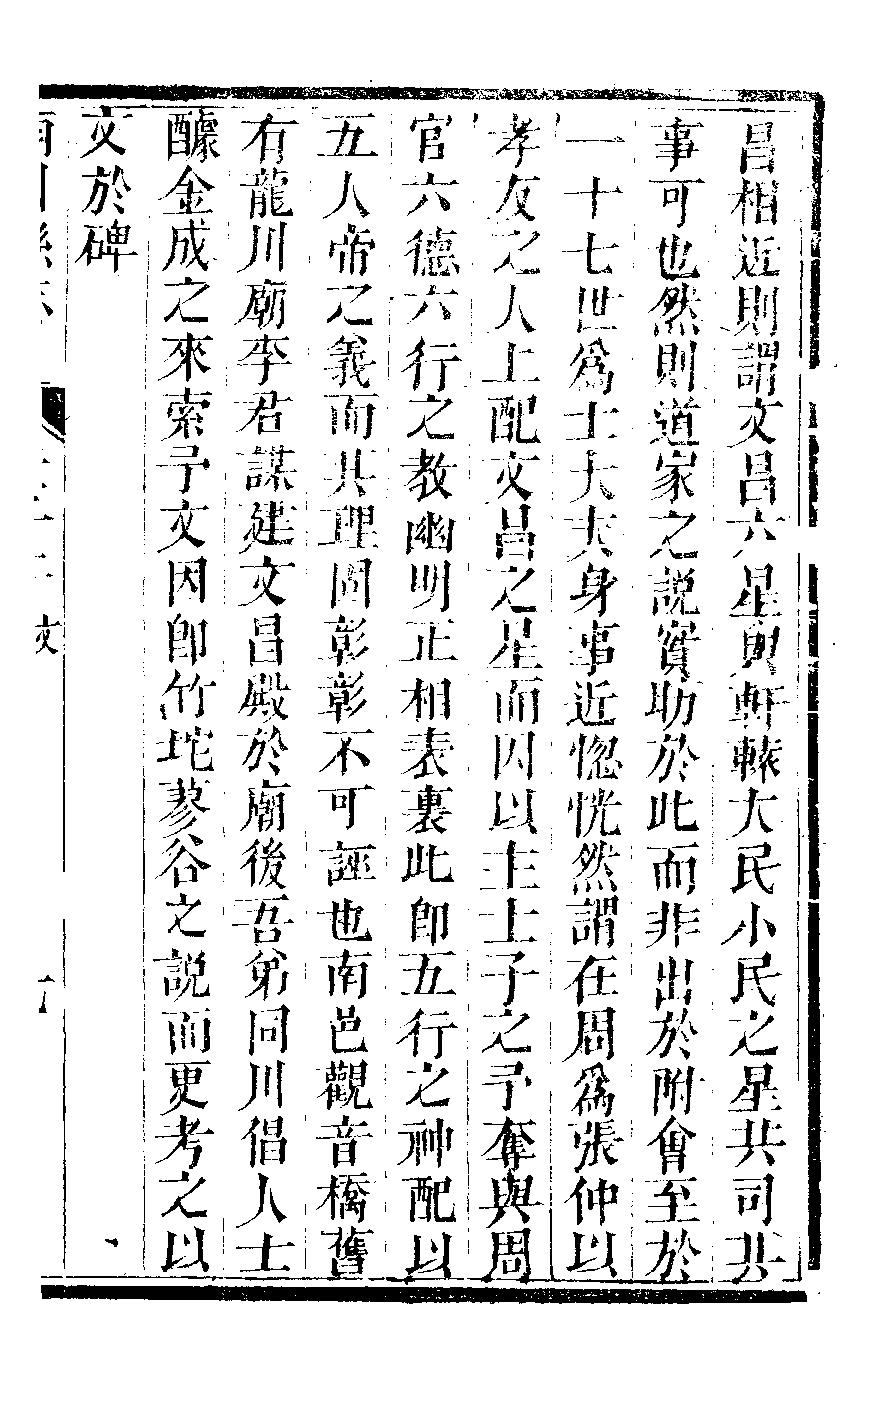 昌相近則謂文昌六星與軒轅大民小民之星共司共
事可也然則道家之說實助於此而非出於附會至於
一十七世爲士大夫身事近惚恍然謂在周爲張仲以
孝友之人上配文昌之星而因以主士子之予奪與周
官六德六行之教幽明正相表裏此卽五行之神配以
五人帝之義而其理固彰彰不可誣也南邑觀音橋舊
有龍川廟李君謀建文昌殿於廟後吾弟同川倡人士
醵金成之來索予文因卽竹垞蓼谷之説而更考之以
文於碑